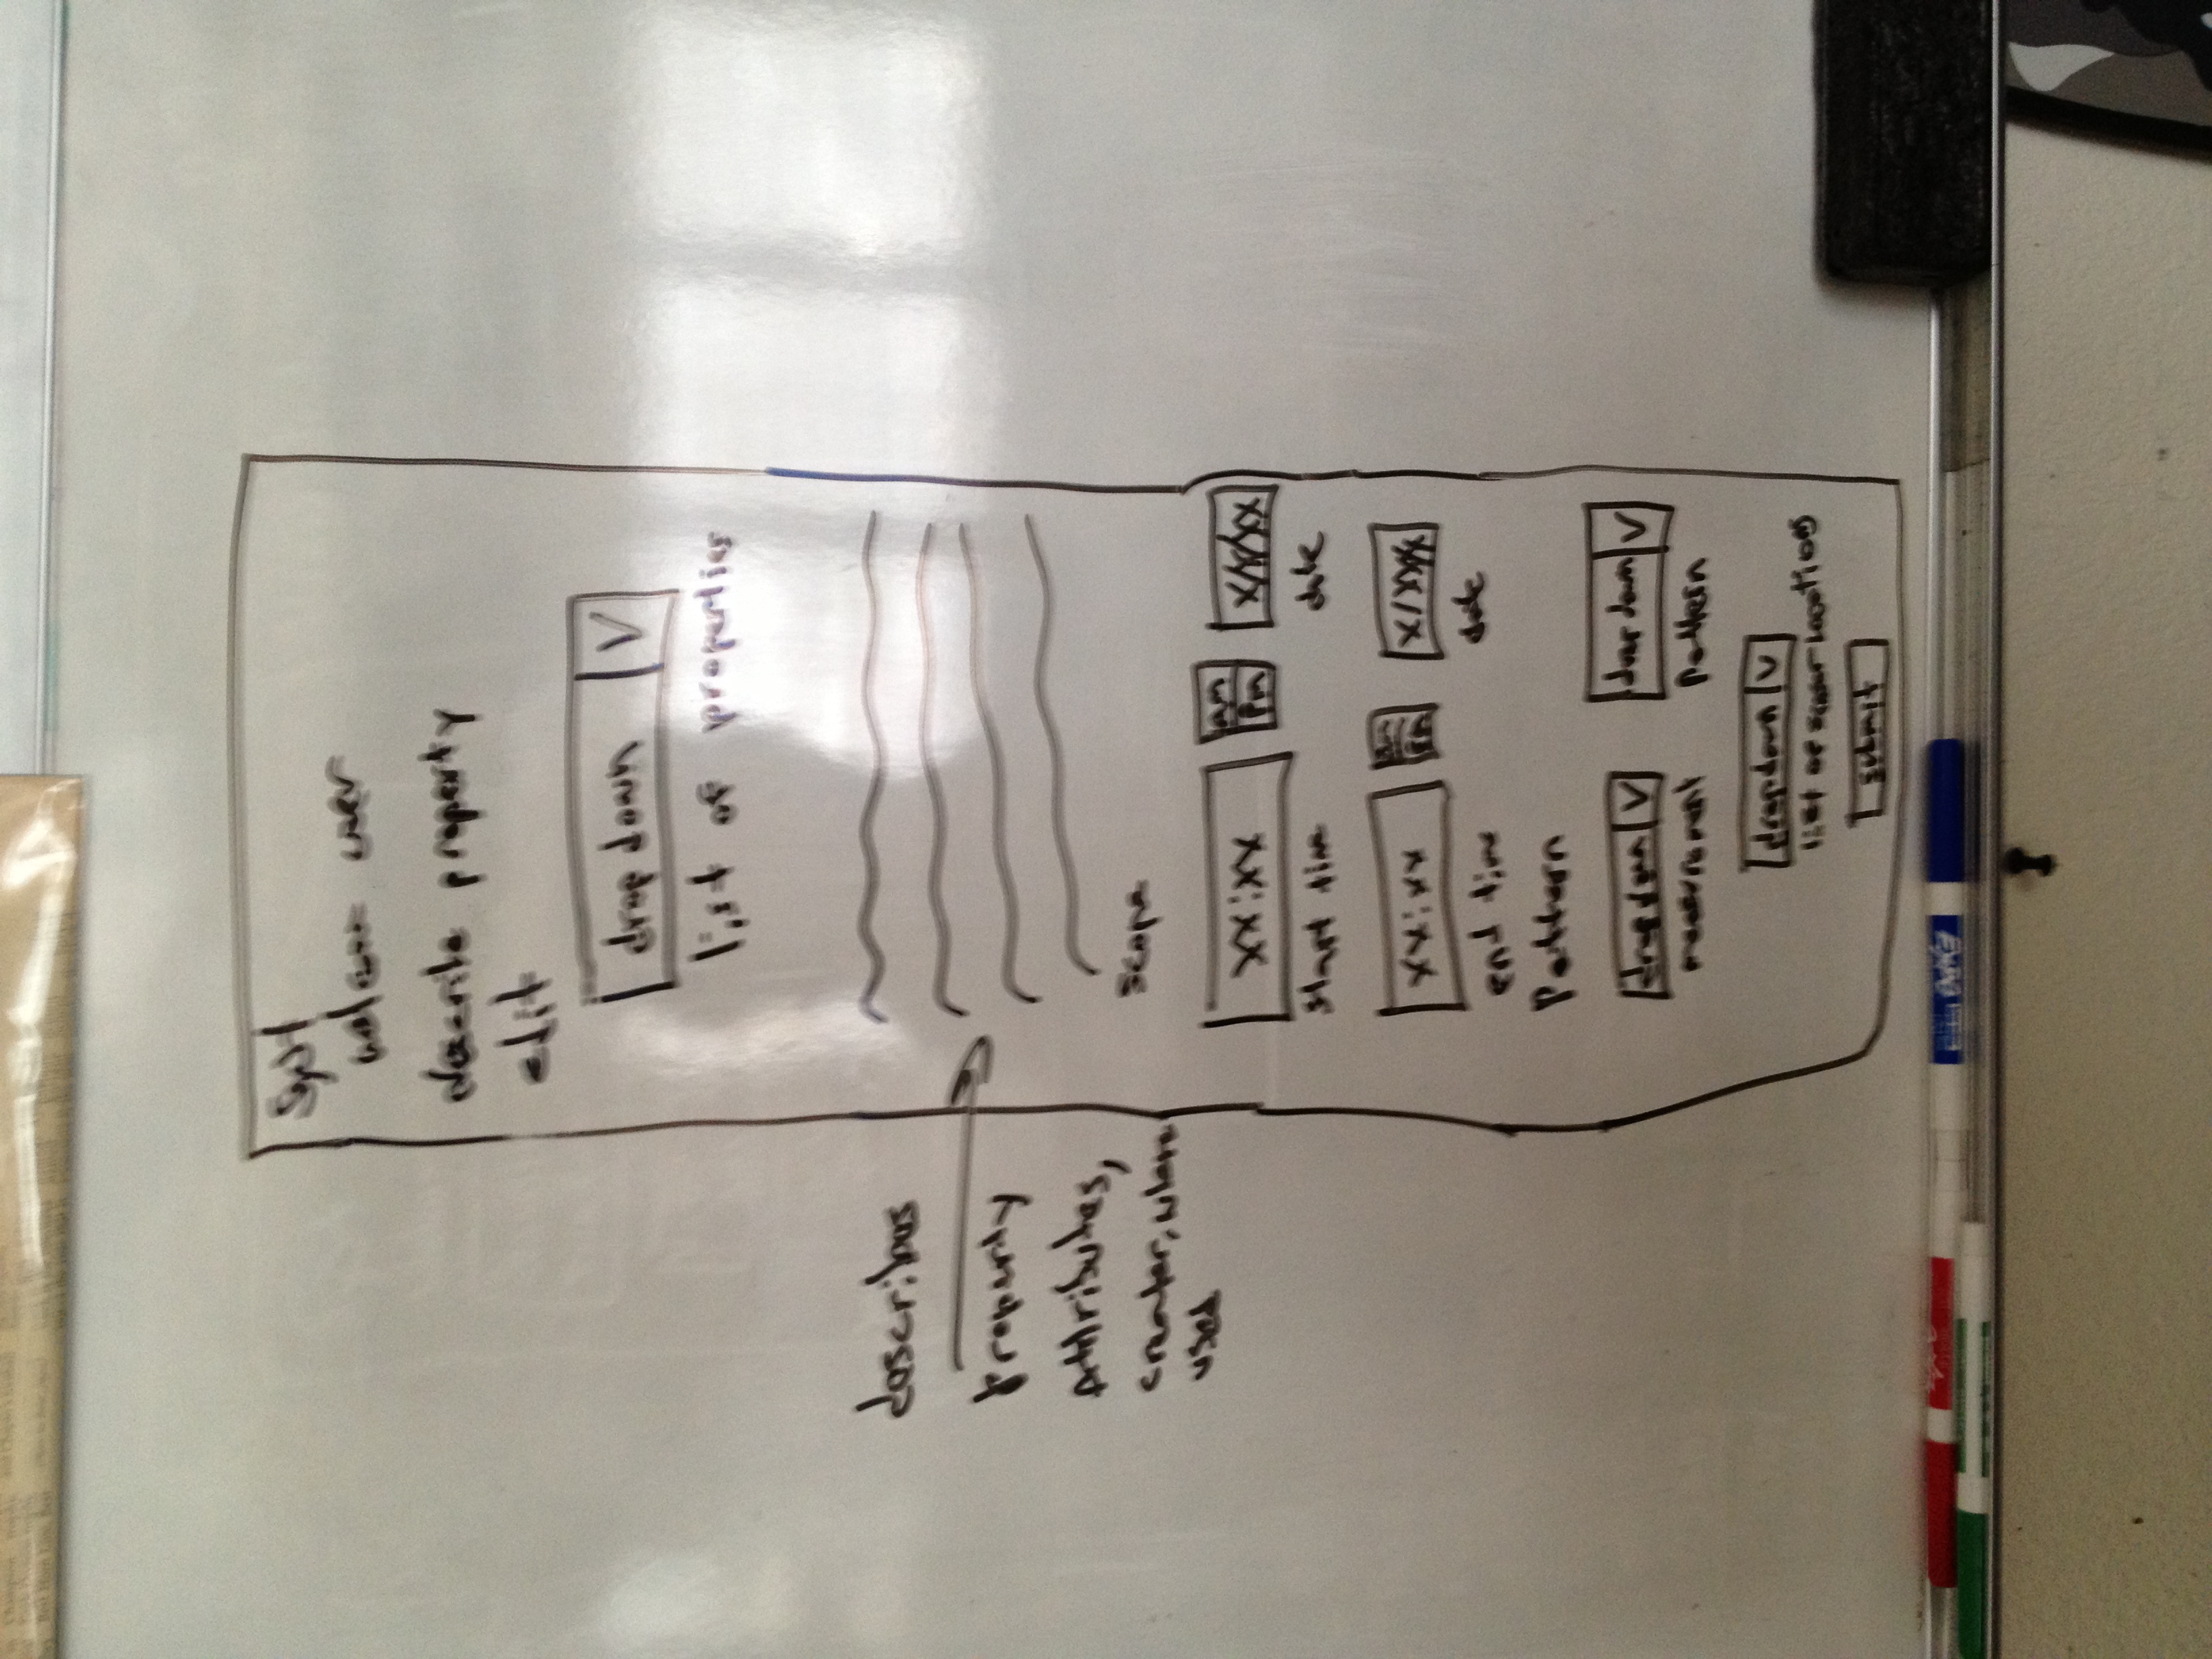 welcome user
describe property
edit
drop down V
list of properties
describes
property
Attributes,
creater, where
used
scope
xx:xx am pm x/x/xx
start time date
xx:xx am pm
end time date
Pattern
dropdown V dropdown V
measurement pattern
dropdown V
list of sensor locations
submit
EXPO